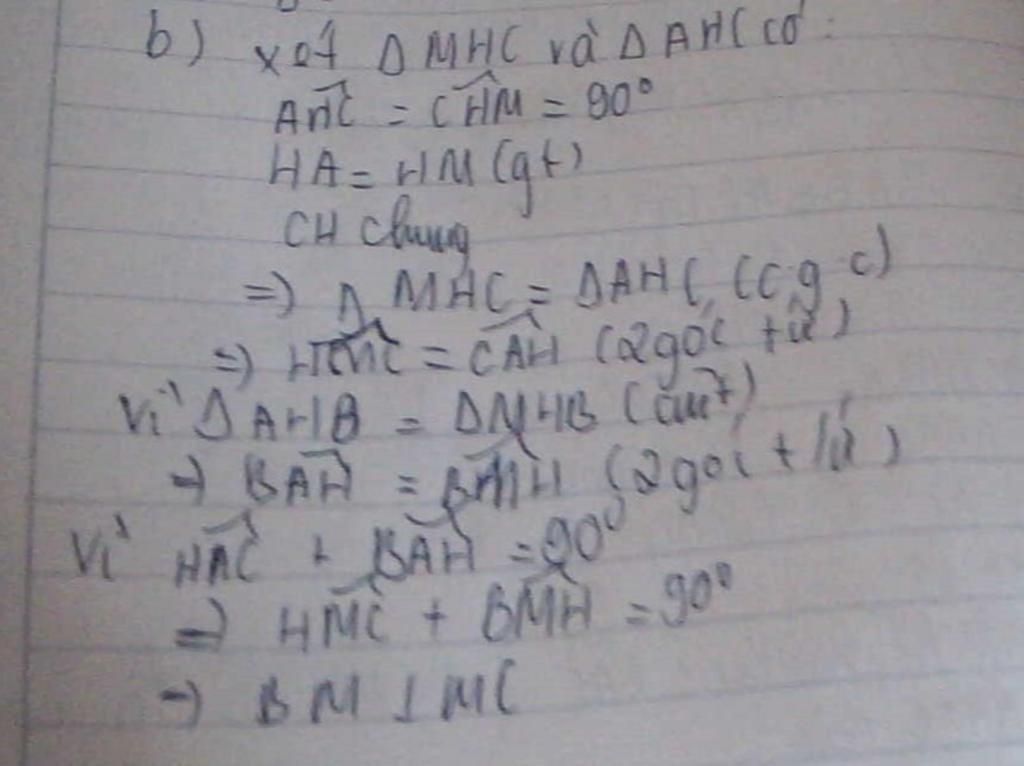 b) xét Δ MHC và Δ AHC có :
AHC = CHM = 90°
HA = HM (gt)
CH chung
=> Δ MHC = Δ AHC (c g c)
=> HMC = CAH (2 góc tứ)
Vì Δ AHB = Δ MHB (cmt)
=> BAH = BMH (2 góc t/ứ)
Vì HAC + BAH = 90°
=> HMC + BMH = 90°
=> BM ⊥ MC